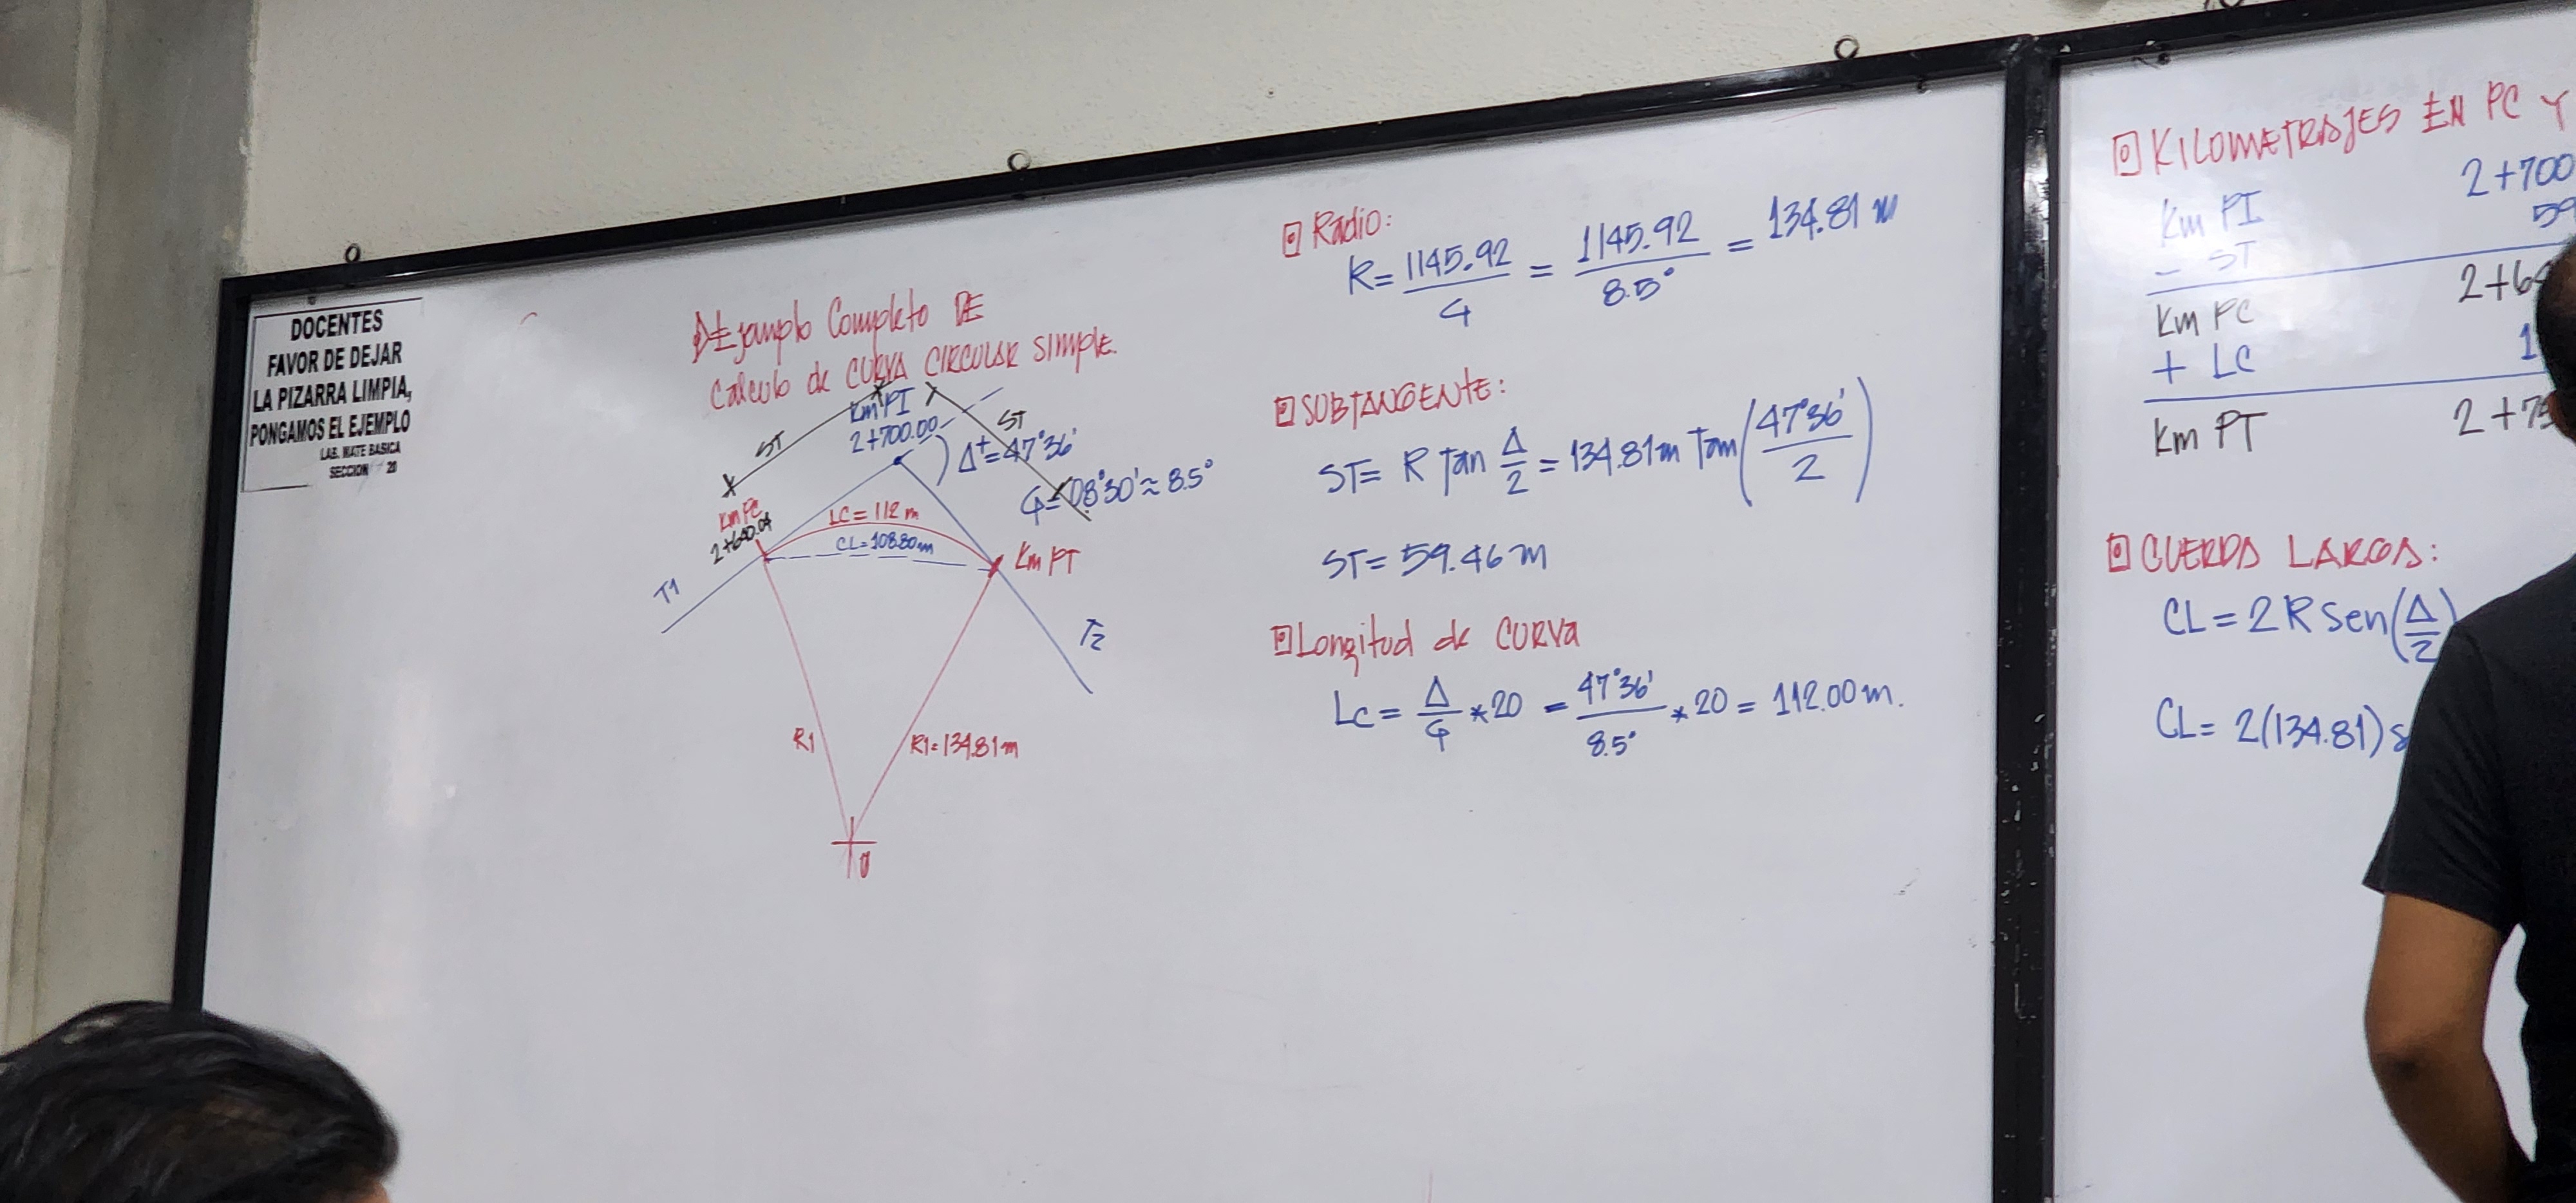 DOCENTES
FAVOR DE DEJAR
LA PIZARRA LIMPIA,
PONGAMOS EL EJEMPLO
LAB. MATE BASICA
SECCION 20
Ejemplo Completo DE
Calculo de CURVA CIRCULAR SIMPLE.
Km PI
2+700.00
ST
ST
Δ+=47°36'
G=08°30'≈8.5°
Km PC
LC=112 m
CL=108.80m
Km PT
T1
T2
R1
R1=134.81m
Radio:
R=1145.92/G = 1145.92/8.5° = 134.81 m
SUBTANGENTE:
ST= R Tan Δ/2 = 134.81m Tan(47°36'/2)
ST= 59.46 m
Longitud de CURVA
Lc= Δ/G *20 = 47°36'/8.5° *20 = 112.00 m.
KILOMETRAJES EN PC Y
Km PI 2+700
- ST 59
Km PC 2+64
+ LC 1
Km PT 2+75
CUERDA LARGA:
CL=2R Sen(Δ/2)
CL= 2(134.81)s